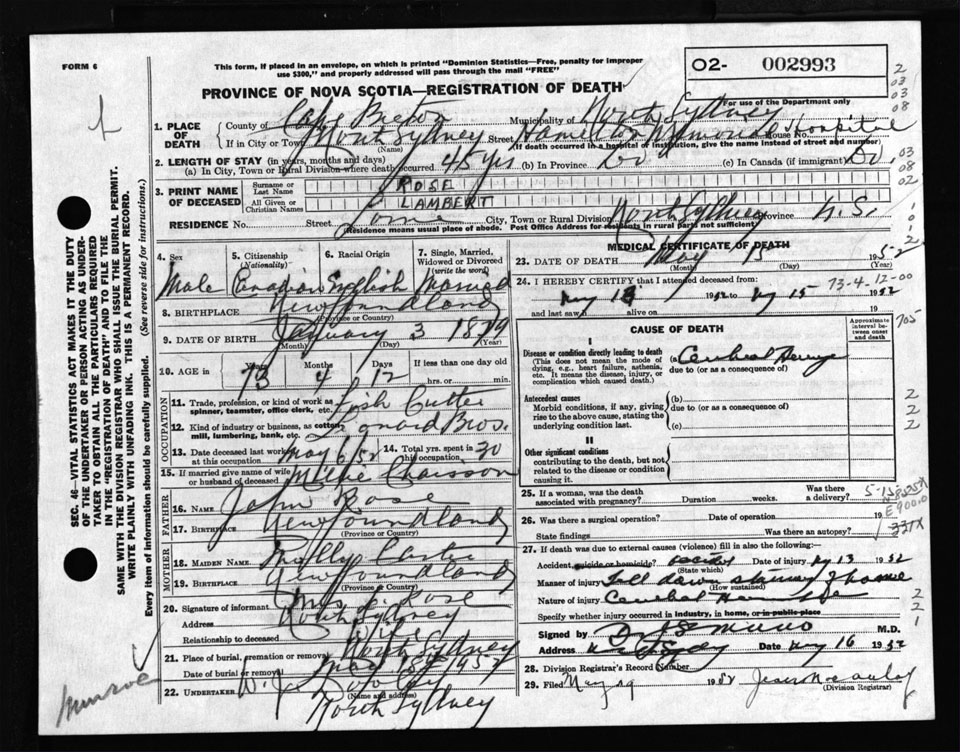 FORM 6
This form, if placed in an envelope, on which is printed "Dominion Statistics—Free, penalty for improper
use $300," and properly addressed will pass through the mail "FREE"
O2- 002993
PROVINCE OF NOVA SCOTIA—REGISTRATION OF DEATH
For use of the Department only
1. PLACE OF DEATH
County of Cape Breton Municipality of North Sydney
If in City or Town North Sydney (Name) Street Hamilton Memorial Hospital House No.
(If death occurred in a hospital or institution, give the name instead of street and number)
2. LENGTH OF STAY (in years, months and days)
(a) In City, Town or Rural Division where death occurred 45 yrs (b) In Province Do (c) In Canada (if immigrant) Do
3. PRINT NAME OF DECEASED
Surname or Last Name ROSE
All Given or Christian Names LAMBERT
RESIDENCE No. Street City, Town or Rural Division North Sydney Province N.S.
(Residence means usual place of abode. Post Office Address for residents in rural parts not sufficient)
4. Sex Male
5. Citizenship (Nationality) Canadian
6. Racial Origin English
7. Single, Married, Widowed or Divorced (write the word) Married
8. BIRTHPLACE Newfoundland
(Province or Country)
9. DATE OF BIRTH January 3 1879
(Month) (Day) (Year)
10. AGE in Years 73 Months 4 Days 12 If less than one day old
hrs. or min.
OCCUPATION
11. Trade, profession, or kind of work as spinner, teamster, office clerk, etc. Fish Cutter
12. Kind of industry or business, as cotton mill, lumbering, bank, etc. Leonard Bros.
13. Date deceased last worked at this occupation May 6/52
14. Total yrs. spent in this occupation 30
15. If married give name of wife or husband of deceased Chaisson
FATHER
16. NAME John Rose
17. BIRTHPLACE Newfoundland
(Province or Country)
MOTHER
18. MAIDEN NAME Molly
19. BIRTHPLACE Newfoundland
(Province or Country)
20. Signature of informant Rose
Address North Sydney
Relationship to deceased Wife
21. Place of burial, cremation or removal North Sydney
Date of burial or removal May 18th 1952
22. UNDERTAKER
(Name and address)
North Sydney
MEDICAL CERTIFICATE OF DEATH
23. DATE OF DEATH May 15 1952
(Month) (Day) (Year)
24. I HEREBY CERTIFY that I attended deceased from: 73-4-12-00
1952 to 15 1952
and last saw h alive on 19
CAUSE OF DEATH
Approximate interval between onset and death
I
Disease or condition directly leading to death
(This does not mean the mode of dying, e.g., heart failure, asthenia, etc. It means the disease, injury, or complication which caused death.)
(a)
due to (or as a consequence of)
Antecedent causes
Morbid conditions, if any, giving rise to the above cause, stating the underlying condition last.
(b)
due to (or as a consequence of)
(c)
II
Other significant conditions
contributing to the death, but not related to the disease or condition causing it.
25. If a woman, was the death associated with pregnancy? Duration weeks. Was there a delivery?
26. Was there a surgical operation? Date of operation 19
State findings Was there an autopsy?
27. If death was due to external causes (violence) fill in also the following:—
Accident, suicide or homicide? (State which) Date of injury 13 1952
Manner of injury Fell down home
(How sustained)
Nature of injury
Specify whether injury occurred in industry, in home, or in public place
Signed by M.D.
Address Date 16 1952
28. Division Registrar's Record Number
29. Filed May 19 1952
(Division Registrar)
SEC. 46—VITAL STATISTICS ACT MAKES IT THE DUTY
OF THE UNDERTAKER OR PERSON ACTING AS UNDER-
TAKER TO OBTAIN ALL THE PARTICULARS REQUIRED
IN THE "REGISTRATION OF DEATH" AND TO FILE THE
SAME WITH THE DIVISION REGISTRAR WHO SHALL ISSUE THE BURIAL PERMIT.
WRITE PLAINLY WITH UNFADING INK. THIS IS A PERMANENT RECORD.
Every item of information should be carefully supplied. (See reverse side for instructions.)
munroe